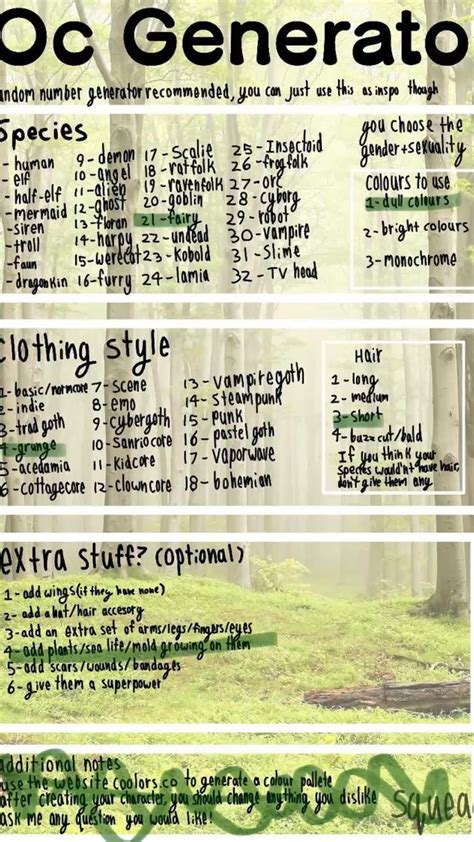 Oc Generato
andom number generator recommended, you can just use this as inspo though
Species
- human
- elf
- half-elf
- mermaid
- siren
- troll
- faun
- dragonkin
9 - demon
10 - angel
11 - alien
12 - ghost
13 - floran
14 - harpy
15 - werecat
16 - furry
17 - Scalie
18 - ratfolk
19 - ravenfolk
20 - goblin
21 - fairy
22 - undead
23 - Kobold
24 - lamia
25 - Insectoid
26 - frogfolk
27 - orc
28 - cyborg
29 - robot
30 - vampire
31 - Slime
32 - TV head
you choose the
gender+sexuality
Colours to use
1 - dull colours
2 - bright colours
3 - monochrome
Clothing style
1 - basic/normcore
2 - indie
3 - trad goth
4 - grunge
5 - acedamia
6 - cottagecore
7 - scene
8 - emo
9 - cybergoth
10 - Sanriocore
11 - Kidcore
12 - clowncore
13 - vampiregoth
14 - steampunk
15 - punk
16 - pastel goth
17 - vaporwave
18 - bohemian
Hair
1 - long
2 - medium
3 - short
4 - buzzcut/bald
If you think your
species wouldn't have hair,
don't give them any
extra stuff? (optional)
1 - add wings(if they have none)
2 - add a hat/hair accesory
3 - add an extra set of arms/legs/fingers/eyes
4 - add plants/sea life/mold growing on them
5 - add scars/wounds/bandages
6 - give them a superpower
additional notes
use the website coolors.co to generate a colour pallete
after creating your character, you should change anything you dislike
ask me any question you would like!
Squea